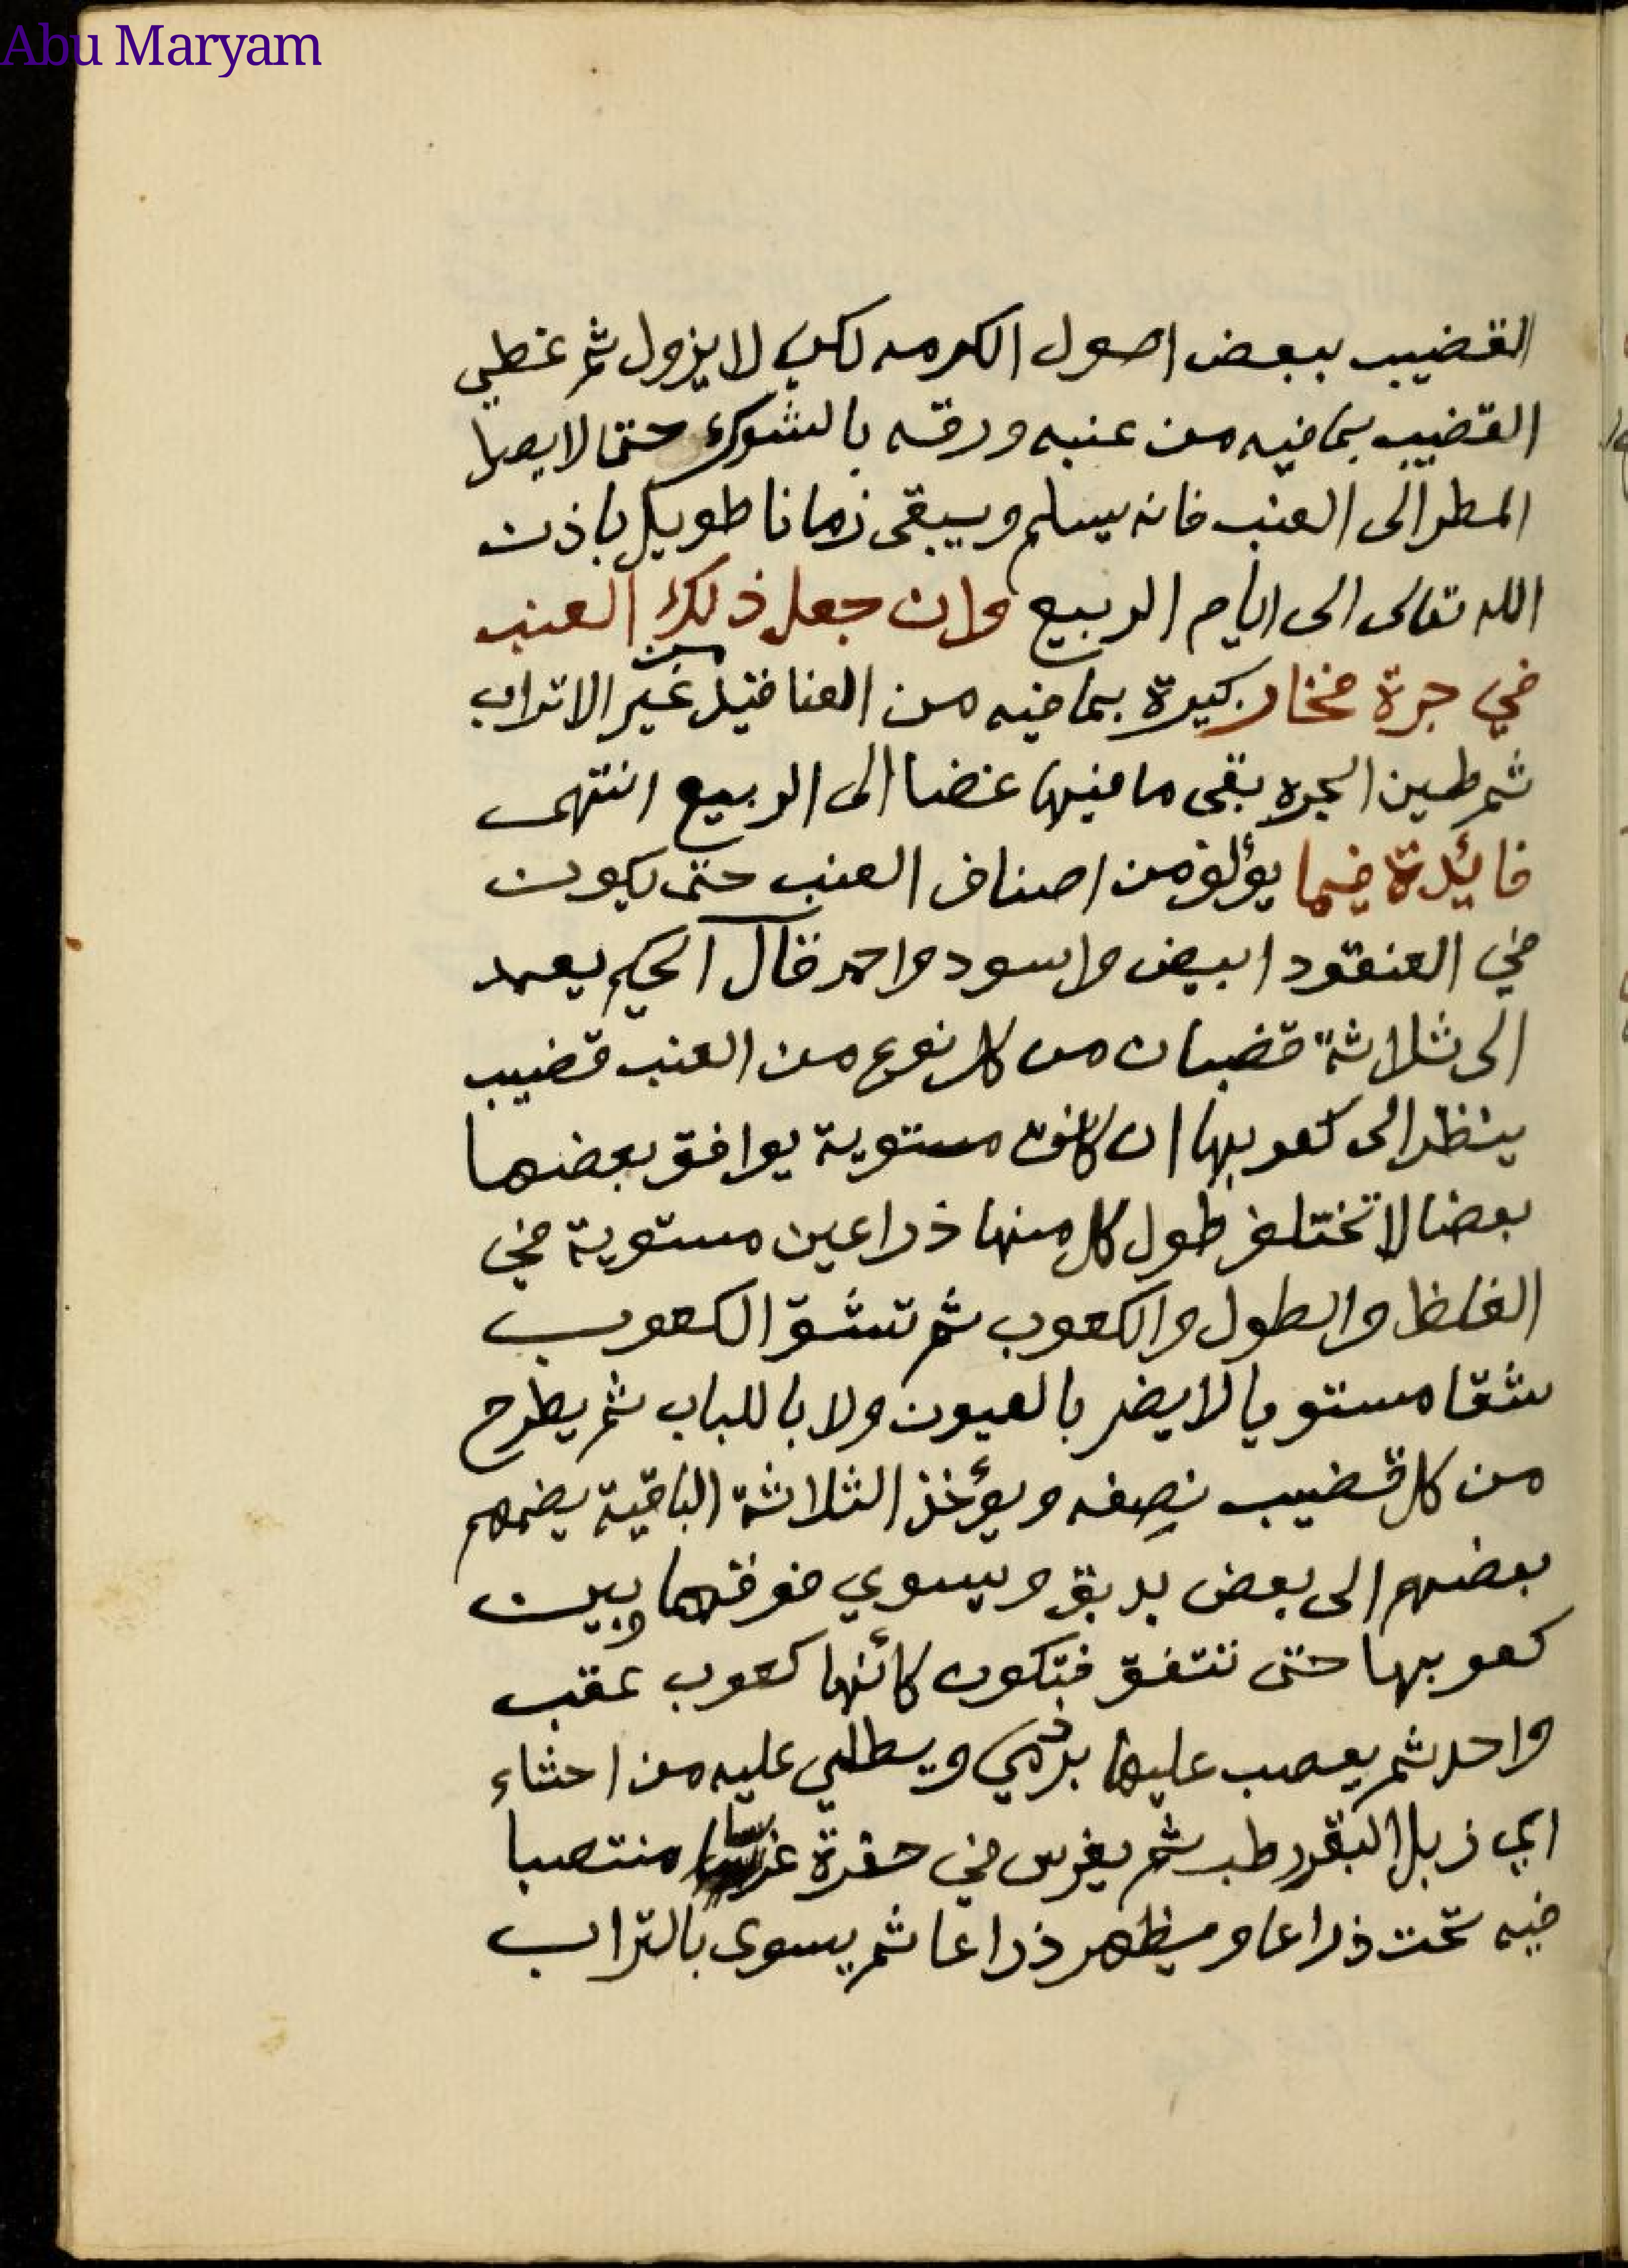 Abu Maryam
القضيب ببعض اصول الكرمه لكي لا يزول ثم غطي
القضيب بما فيه من عنبه ورقه بالشوك حتا لا يصل
المطر الى العنب فانه يسلم ويبقى زمانا طويل باذن
الله تعالى الى ايام الربيع وان جعل ذلك العنب
في جرة فخار كبيرة بما فيه من العناقيد من غير الاتراب
ثم طين الجره بقى ما فيها غضا الى الربيع انتهى
فائدة فيما يؤلف من اصناف العنب حتى يكون
في العنقود ابيض واسود واحمر قال الحكيم يعمد
الى ثلاثة قضبان من كل نوع من العنب قضيب
ينظر الى كعوبها ان كانت مستوية يوافق بعضها
بعضا لا تختلف طول كل منها ذراعين مستوية في
الغلظ والطول والكعوب ثم تشق الكعوب
شقا مستويا لا يضر بالعيون ولا باللباب ثم يطرح
من كل قضيب نصفه ويؤخذ الثلاثة الباقية يضمهم
بعضهم الى بعض بدبق ويسوي فوقهما وبين
كعوبها حتى تتفق فتكون كأنها كعوب عقب
واحد ثم يعصب عليها ويطلي عليه من احثاء
اي زبل البقر رطب ثم يغرس في حفرة غرسا منتصبا
فيه تحت ذراعا وميظهر ذراعا ثم يسوى بالتراب